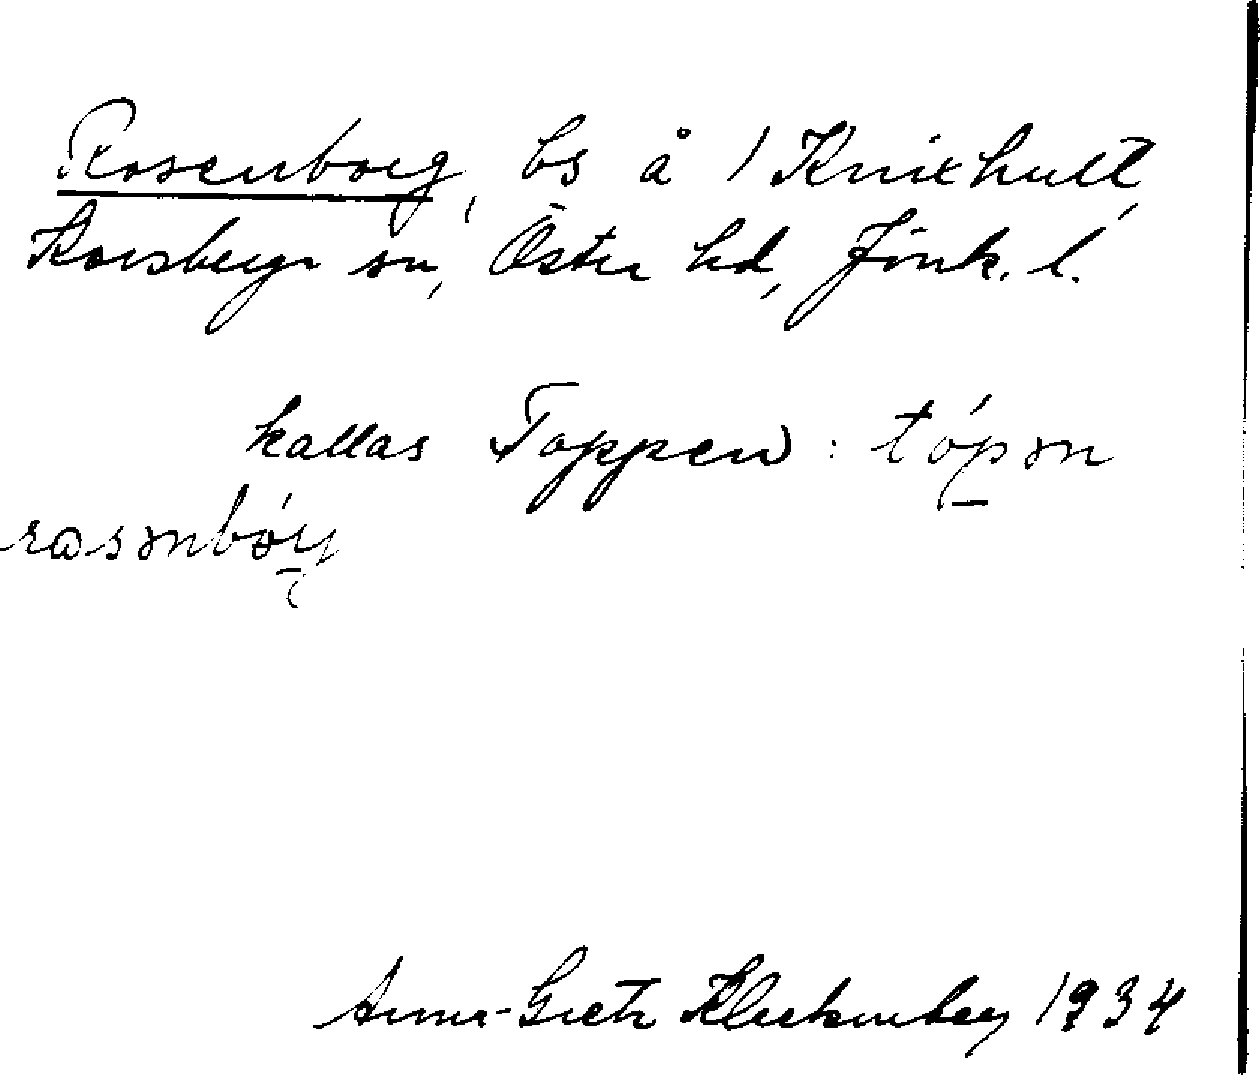 Rosenborg, bs å 1 Knixhult,
Korsberga sn, Östra hd, Jönk. l.
kallas Toppen: tópən
rosənbórj
Anna-Greta Klackenberg 1934